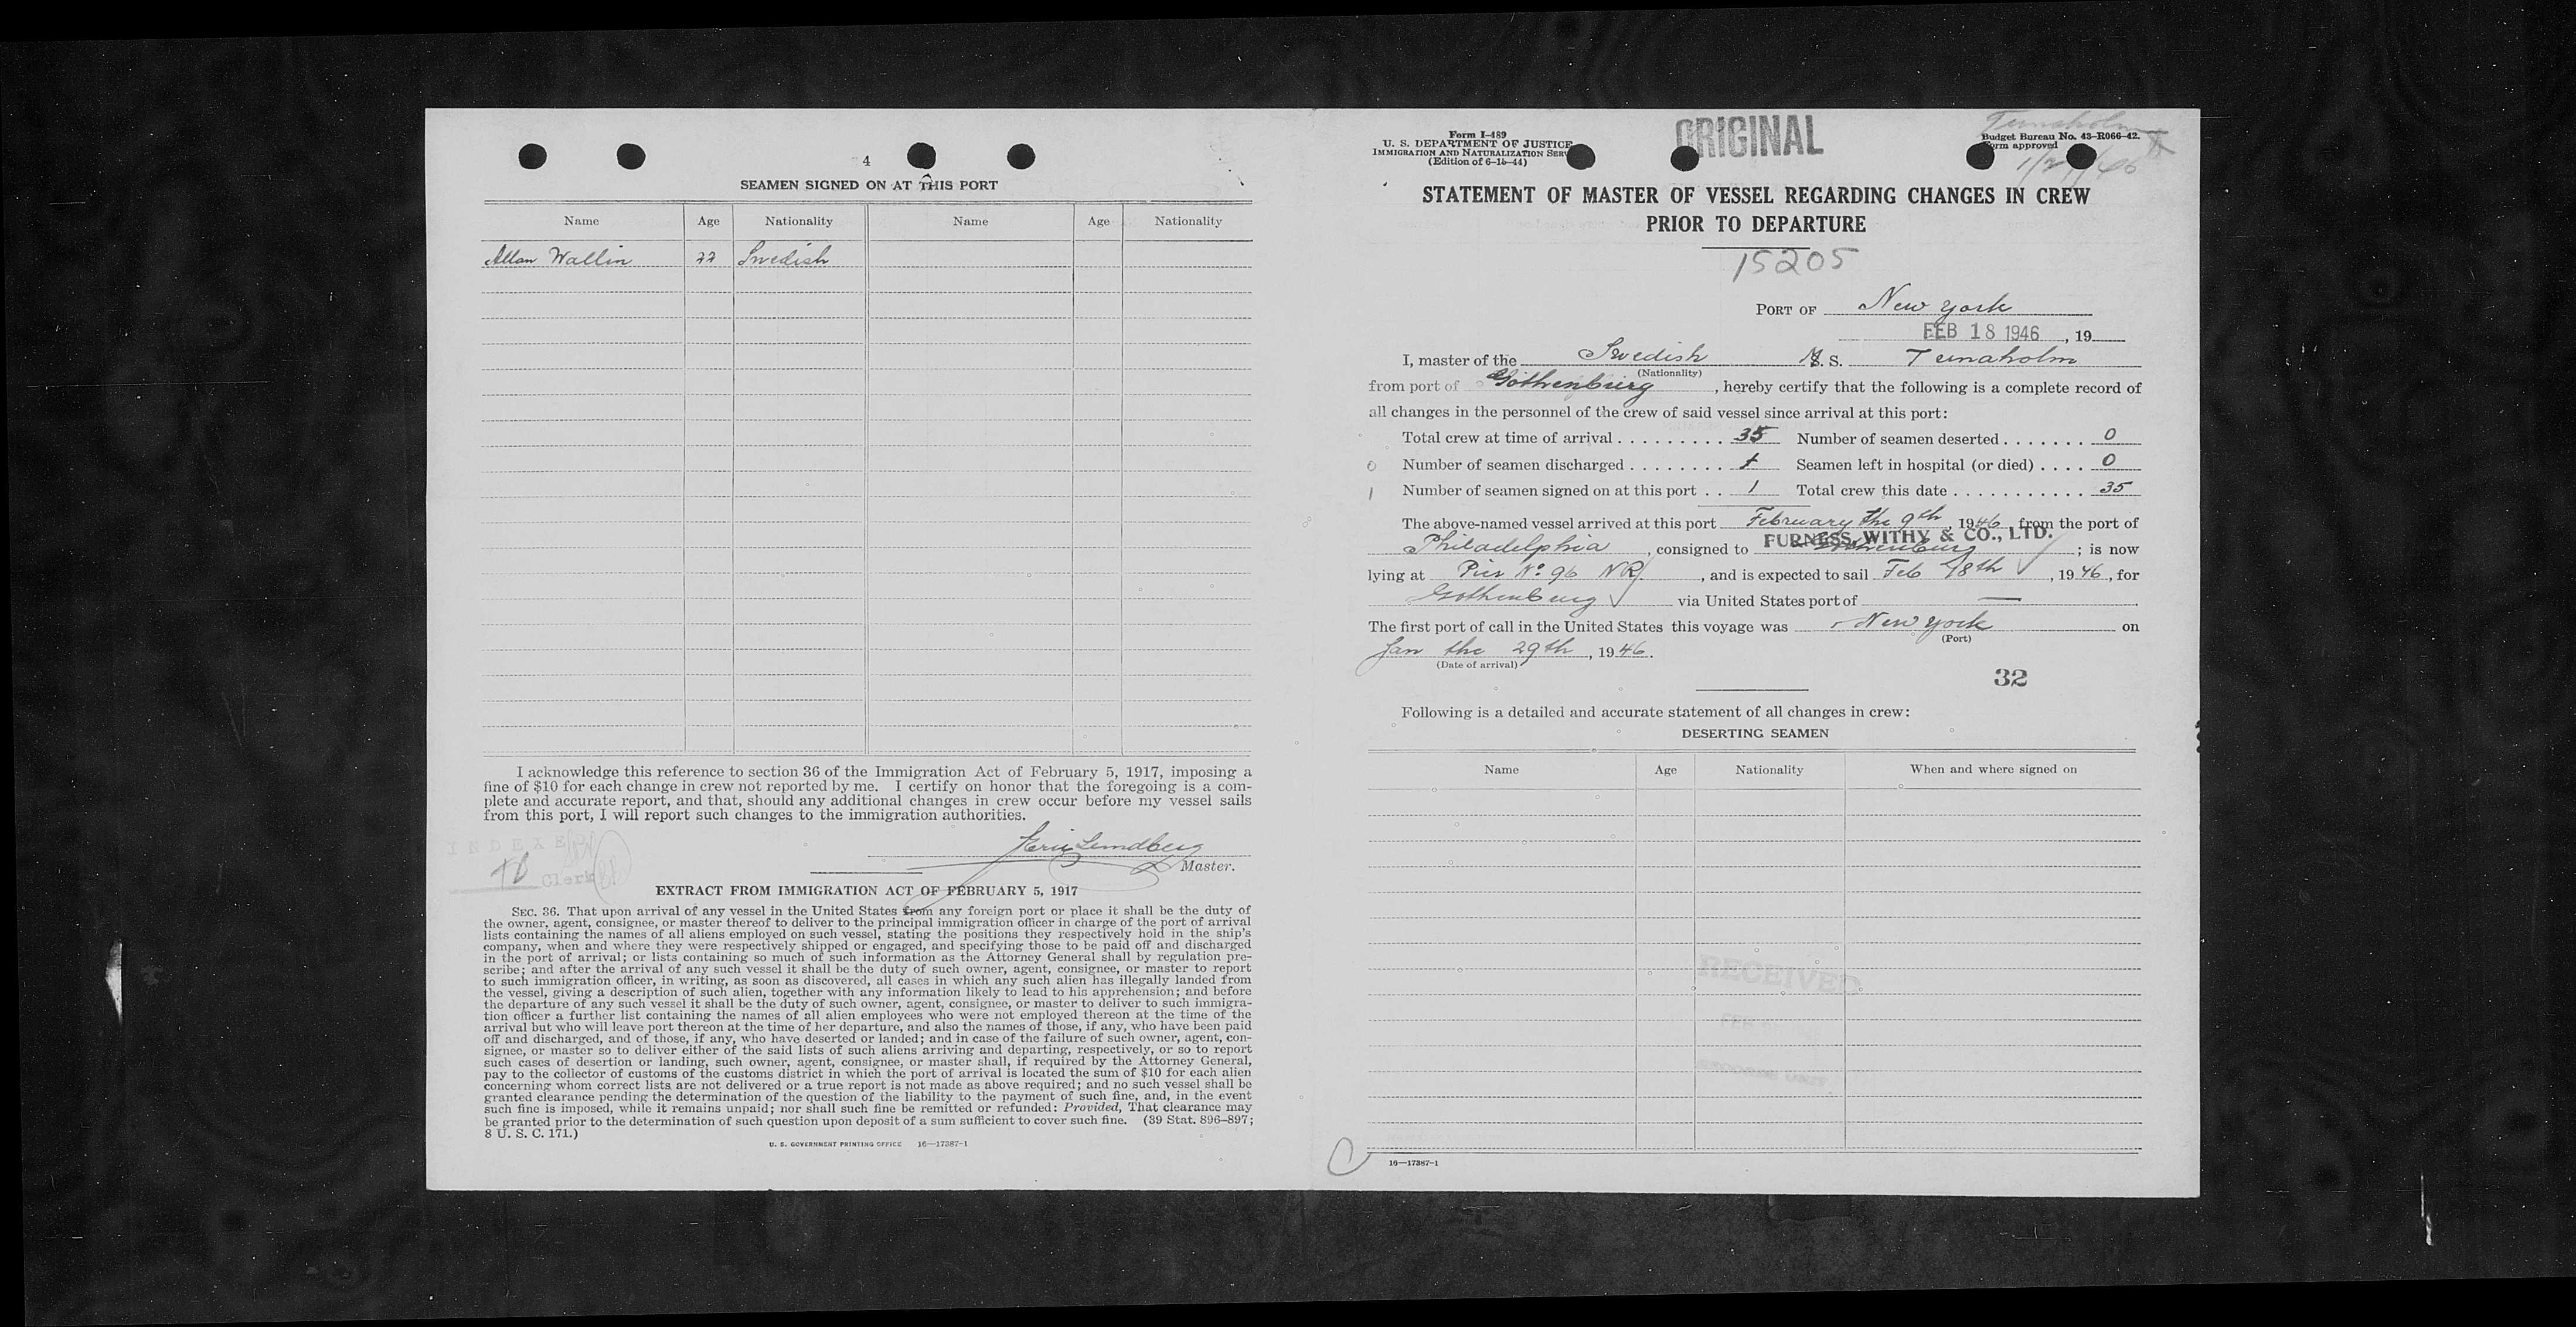 4
SEAMEN SIGNED ON AT THIS PORT
Name Age Nationality Name Age Nationality
Allan Wallin 22 Swedish
I acknowledge this reference to section 36 of the Immigration Act of February 5, 1917, imposing a
fine of $10 for each change in crew not reported by me. I certify on honor that the foregoing is a com-
plete and accurate report, and that, should any additional changes in crew occur before my vessel sails
from this port, I will report such changes to the immigration authorities.
INDEXED
Eric Lundberg
Clerk
Master.
EXTRACT FROM IMMIGRATION ACT OF FEBRUARY 5, 1917
SEC. 36. That upon arrival of any vessel in the United States from any foreign port or place it shall be the duty of
the owner, agent, consignee, or master thereof to deliver to the principal immigration officer in charge of the port of arrival
lists containing the names of all aliens employed on such vessel, stating the positions they respectively hold in the ship's
company, when and where they were respectively shipped or engaged, and specifying those to be paid off and discharged
in the port of arrival; or lists containing so much of such information as the Attorney General shall by regulation pre-
scribe; and after the arrival of any such vessel it shall be the duty of such owner, agent, consignee, or master to report
to such immigration officer, in writing, as soon as discovered, all cases in which any such alien has illegally landed from
the vessel, giving a description of such alien, together with any information likely to lead to his apprehension; and before
the departure of any such vessel it shall be the duty of such owner, agent, consignee, or master to deliver to such immigra-
tion officer a further list containing the names of all alien employees who were not employed thereon at the time of the
arrival but who will leave port thereon at the time of her departure, and also the names of those, if any, who have been paid
off and discharged, and of those, if any, who have deserted or landed; and in case of the failure of such owner, agent, con-
signee, or master so to deliver either of the said lists of such aliens arriving and departing, respectively, or so to report
such cases of desertion or landing, such owner, agent, consignee, or master shall, if required by the Attorney General,
pay to the collector of customs of the customs district in which the port of arrival is located the sum of $10 for each alien
concerning whom correct lists are not delivered or a true report is not made as above required; and no such vessel shall be
granted clearance pending the determination of the question of the liability to the payment of such fine, and, in the event
such fine is imposed, while it remains unpaid; nor shall such fine be remitted or refunded: Provided, That clearance may
be granted prior to the determination of such question upon deposit of a sum sufficient to cover such fine. (39 Stat. 896-897;
8 U. S. C. 171.)
U. S. GOVERNMENT PRINTING OFFICE 16—17387-1
Form I-489
U. S. DEPARTMENT OF JUSTICE
IMMIGRATION AND NATURALIZATION SERV
(Edition of 6-15-44)
ORIGINAL
Temnaholm
Budget Bureau No. 43-R066-42.
Form approved
STATEMENT OF MASTER OF VESSEL REGARDING CHANGES IN CREW
PRIOR TO DEPARTURE
15205
PORT OF New York
FEB 18 1946, 19
I, master of the Swedish M. S. Temnaholm
(Nationality)
from port of Gothenburg, hereby certify that the following is a complete record of
all changes in the personnel of the crew of said vessel since arrival at this port:
Total crew at time of arrival . . . . . . . . . 35 Number of seamen deserted . . . . . . . 0
0 Number of seamen discharged . . . . . . . . 1 Seamen left in hospital (or died) . . . . 0
1 Number of seamen signed on at this port . . 1 Total crew this date . . . . . . . . . . . 35
The above-named vessel arrived at this port February the 9th, 1946, from the port of
Philadelphia, consigned to FURNESS, WITHY & CO., LTD. ; is now
lying at Pier No 96 NR, and is expected to sail Feb 18th, 1946, for
Gothenburg via United States port of —
The first port of call in the United States this voyage was New York on
(Port)
Jan the 29th, 1946.
(Date of arrival)
32
Following is a detailed and accurate statement of all changes in crew:
DESERTING SEAMEN
Name Age Nationality When and where signed on
RECEIVED
FEB
16—17387-1